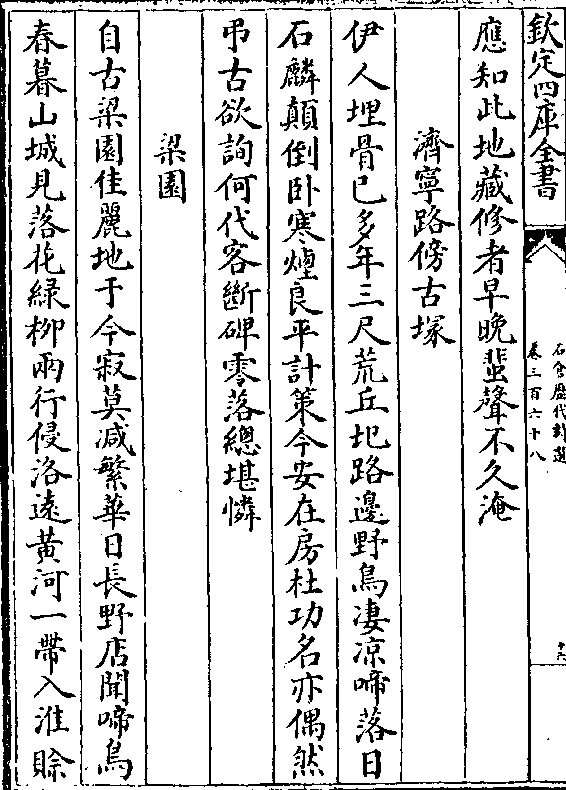 欽定四庫全書
石倉歷代詩選
卷三百六十八
十六
應知此地藏修者早晚蜚聲不久淹
濟寧路傍古塚
伊人埋骨已多年三尺荒丘圯路邊野鳥凄凉啼落日
石麟顛倒卧寒煙良平計策今安在房杜功名亦偶然
弔古欲詢何代客斷碑零落總堪憐
梁園
自古梁園佳麗地于今寂莫减繁華日長野店聞啼鳥
春暮山城見落花緑柳兩行侵洛遠黄河一帶入淮賒